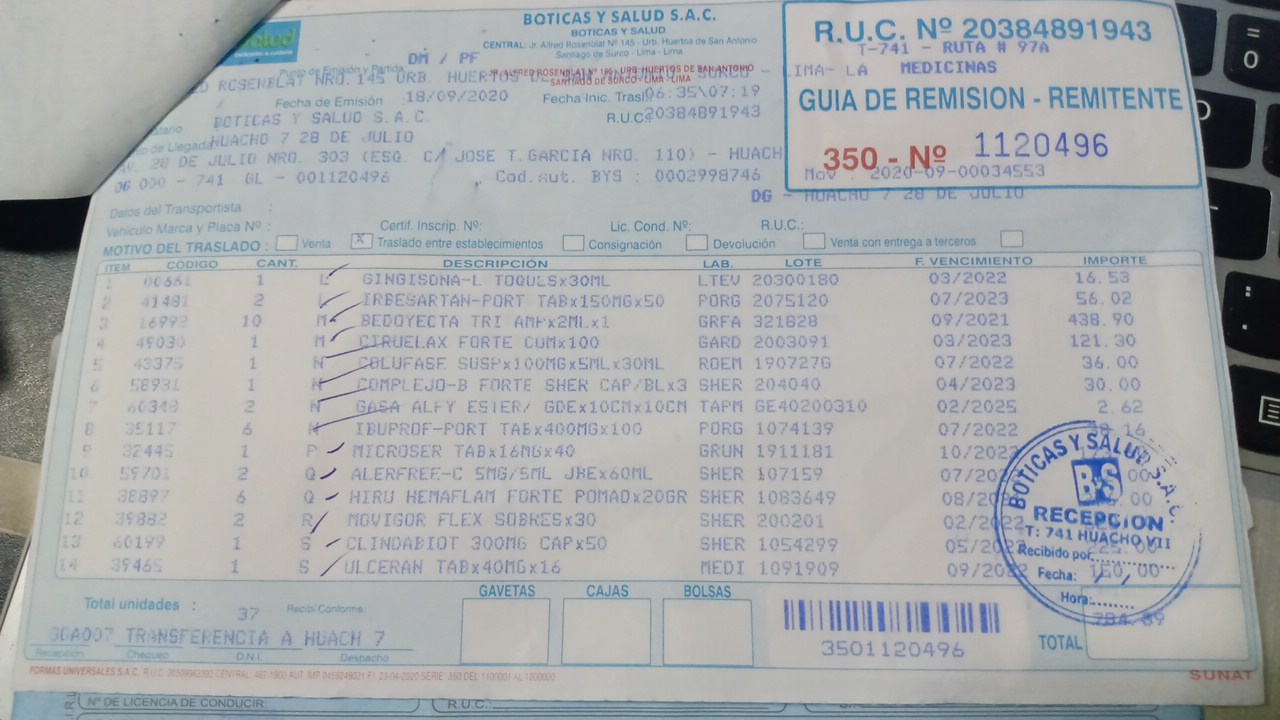 BOTICAS Y SALUD S.A.C.
BOTICAS Y SALUD
CENTRAL: Jr. Alfred Rosenblat Nº 145 - Urb. Huertos de San Antonio
Santiago de Surco - Lima - Lima
DM / PF
R.U.C. Nº 20384891943
T-741 - RUTA # 97A
MEDICINAS
GUIA DE REMISION - REMITENTE
350 - Nº 1120496
Mov : 2020-09-00034553
ROSENBLAT NRO. 145 URB. HUERTOS SURCO - LIMA- LA
Fecha de Emisión : 18/09/2020 Fecha Inic. Trasl. 06:35\07:19
BOTICAS Y SALUD S.A.C. R.U.C. 20384891943
de Llegada HUACHO 7 28 DE JULIO
AV. 28 DE JULIO NRO. 303 (ESQ. C/ JOSE T.GARCIA NRO. 110) - HUACH
DG 000 - 741 GL - 001120496 Cod.Aut. BYS : 0002998746
DG - HUACHO 7 28 DE JULIO
Datos del Transportista :
Vehículo Marca y Placa Nº : Certif. Inscrip. Nº: Lic. Cond. Nº: R.U.C.:
MOTIVO DEL TRASLADO : Venta X Traslado entre establecimientos Consignación Devolución Venta con entrega a terceros
ITEM CÓDIGO CANT. DESCRIPCIÓN LAB. LOTE F. VENCIMIENTO IMPORTE
1 00661 1 L GINGISONA-L TOQUESx30ML LTEV 20300180 03/2022 16.53
2 41481 2 L IRBESARTAN-PORT TABx150MGx50 PORG 2075120 07/2023 56.02
3 16992 10 M BEDOYECTA TRI AMPx2MLx1 GRFA 321828 09/2021 438.90
4 49030 1 M CIRUELAX FORTE COMx100 GARD 2003091 03/2023 121.30
5 43375 1 N COLUFASE SUSPx100MGx5MLx30ML ROEM 190727G 07/2022 36.00
6 58931 1 N COMPLEJO-B FORTE SHER CAP/BLx3 SHER 204040 04/2023 30.00
7 60348 2 N GASA ALFY ESTER/ GDEx10CMx10CM TAPM GE40200310 02/2025 2.62
8 35117 6 N IBUPROF-PORT TABx400MGx100 PORG 1074139 07/2022
9 32445 1 P MICROSER TABx16MGx40 GRUN 1911181 10/2022
10 59701 2 Q ALERFREE-C 5MG/5ML JBEx60ML SHER 107159
11 38897 6 Q HIRU HEMAFLAM FORTE POMADx20GR SHER 1083649
12 39882 2 R MOVIGOR FLEX SOBRESx30 SHER 200201
13 60199 1 S CLINDABIOT 300MG CAPx50 SHER 1054299
14 39465 1 S ULCERAN TABx40MGx16 MEDI 1091909
BOTICAS Y SALUD S.A.C.
B&S
RECEPCION
T: 741 HUACHO VII
Recibido por:
Fecha:
Hora:
Total unidades : 37 Recibí Conforme:
GAVETAS CAJAS BOLSAS
TRANSFERENCIA A HUACH 7
Recepción Chequeo D.N.I. Despacho
3501120496
TOTAL
FORMAS UNIVERSALES S.A.C.
SUNAT
Nº DE LICENCIA DE CONDUCIR R.U.C.: